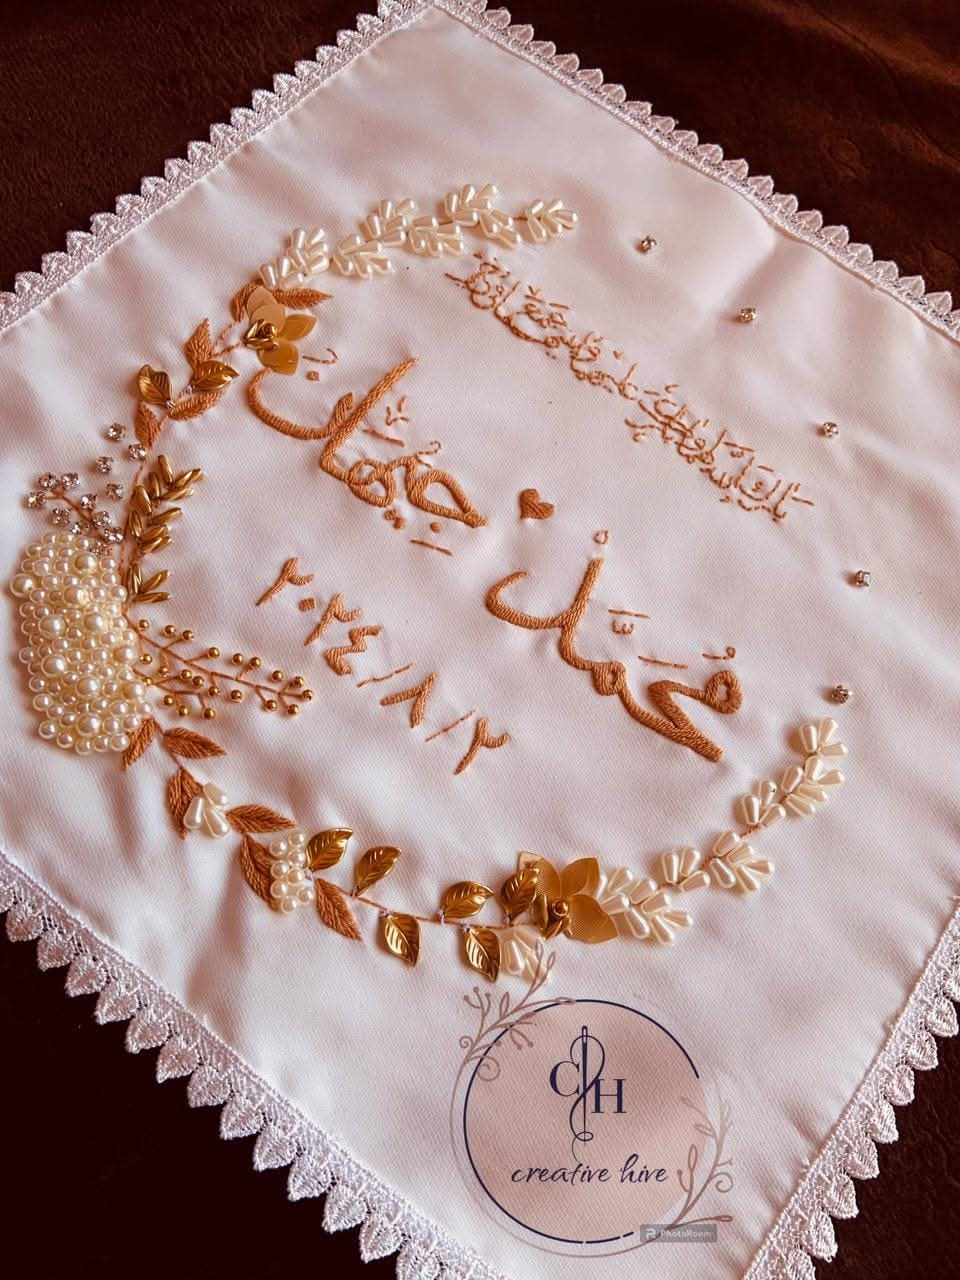 بارك الله لكما وبارك عليكما وجمع بينكما في خير
٢٠٢٤/٨/٢
CH
creative hive
PhotoRoom